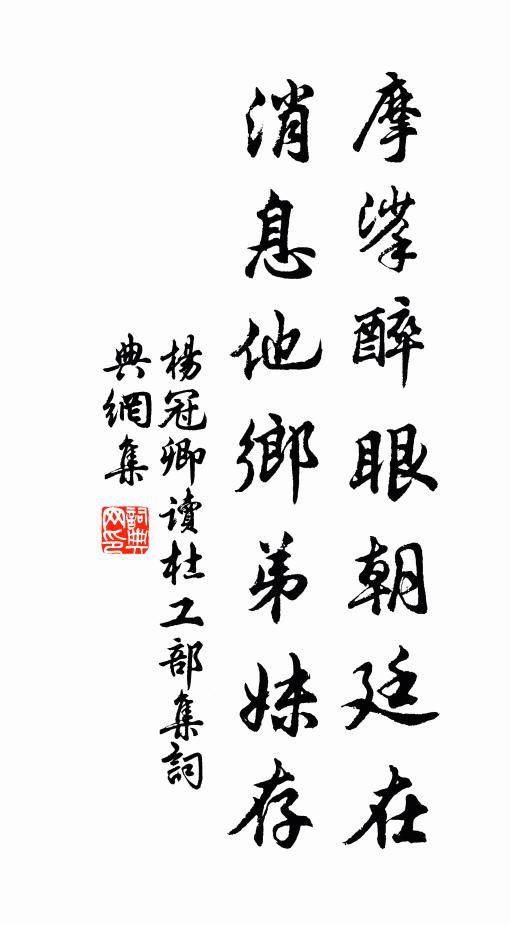 摩挲醉眼朝廷在
消息他鄉弟妹存
楊冠卿讀杜工部集詞
典網集
詞典網印